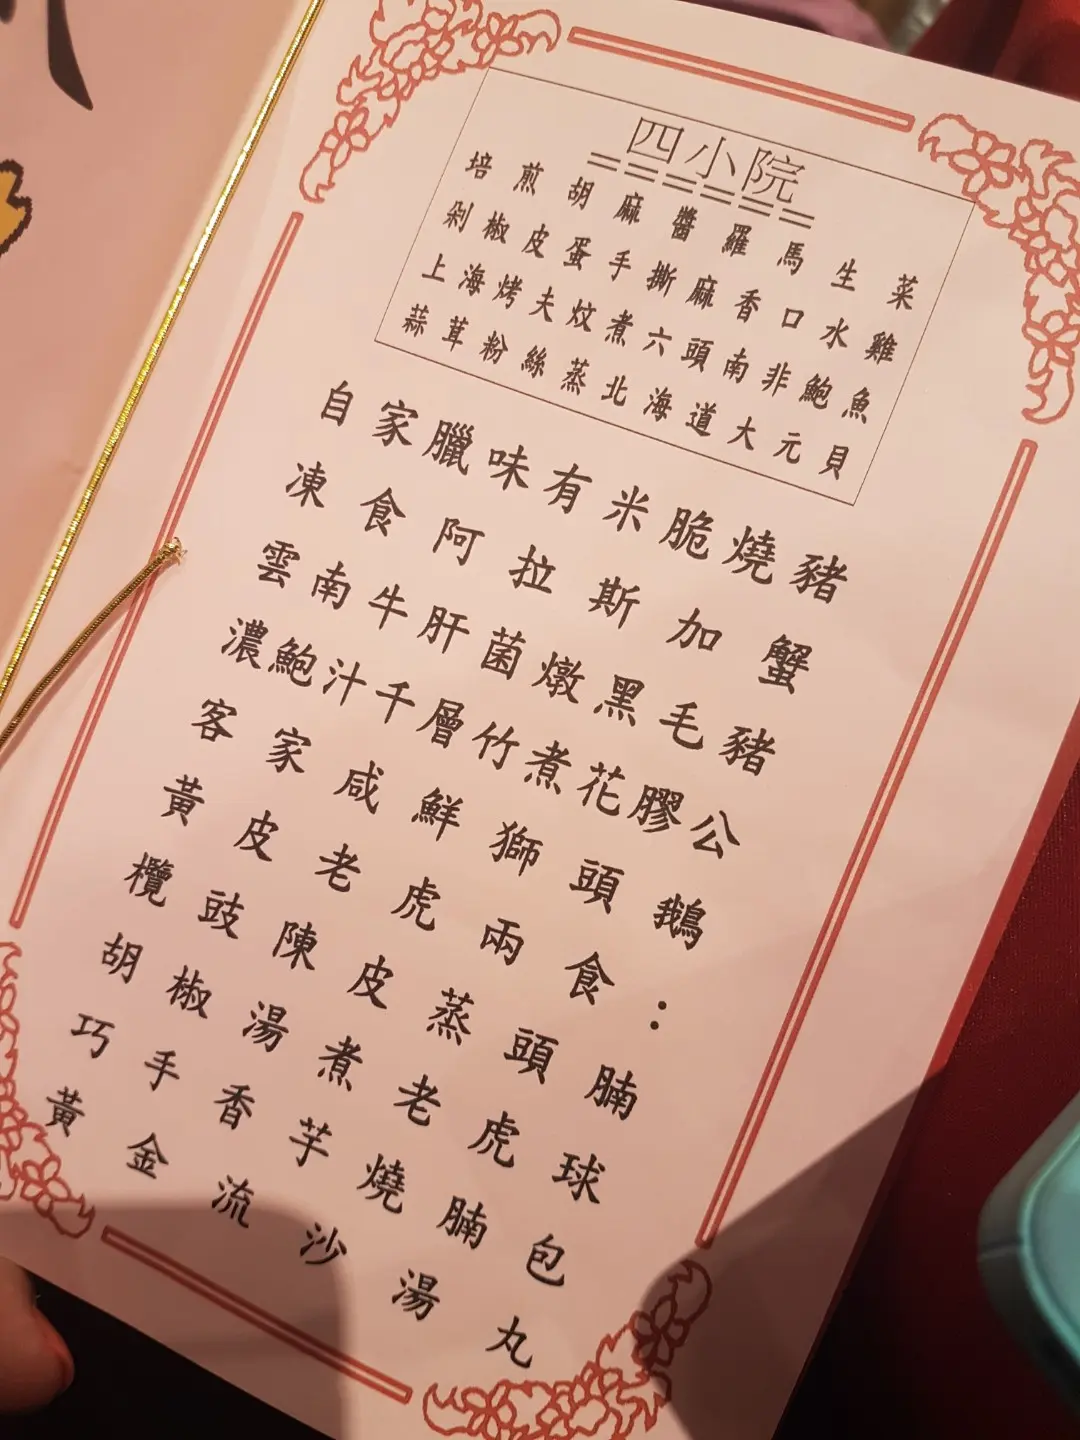 四小院
培煎胡麻醬羅馬生菜
剁椒皮蛋手撕麻香口水雞
上海烤夫炆煮六頭南非鮑魚
蒜茸粉絲蒸北海道大元貝
自家臘味有米脆燒豬
凍食阿拉斯加蟹
雲南牛肝菌燉黑毛豬
濃鮑汁千層竹煮花膠公
客家咸鮮獅頭鵝
黃皮老虎兩食：
欖豉陳皮蒸頭腩
胡椒湯煮老虎球
巧手香芋燒腩包
黃金流沙湯丸